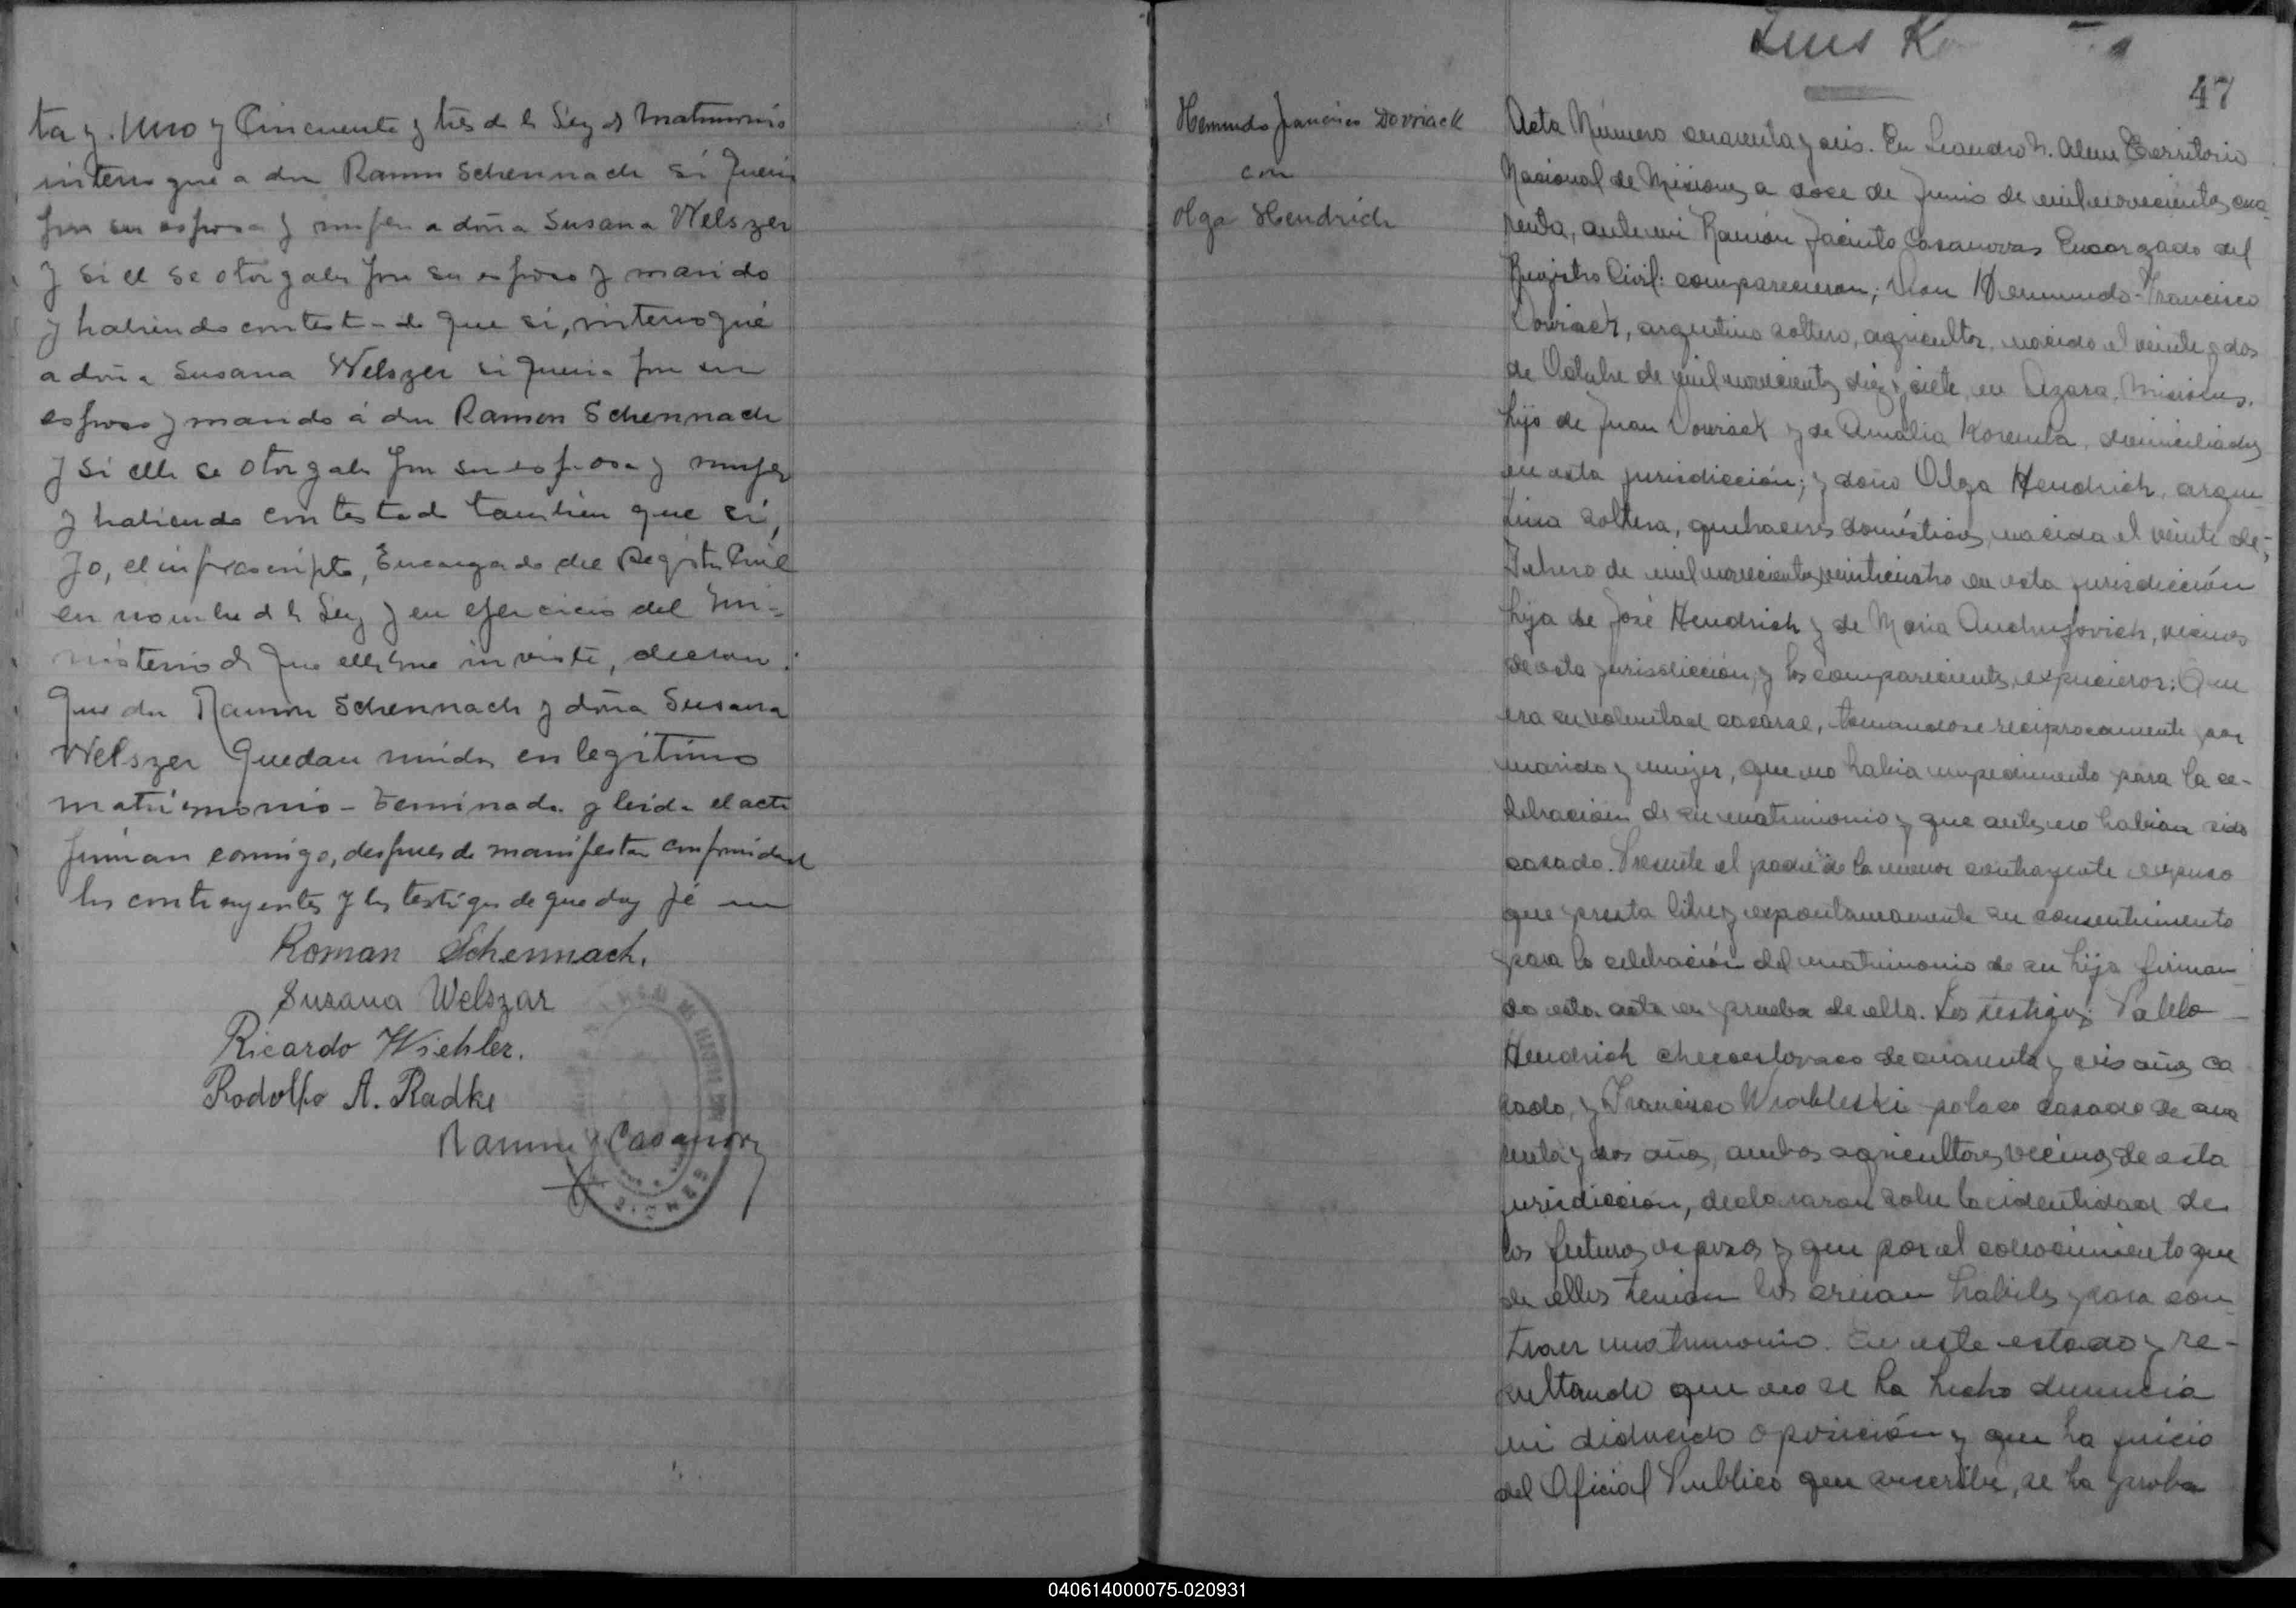 ta y uno y Cincuenta y tres de la Ley de Matrimonio
interrogué a don Ramon Schennach si queria
por su esposa y mujer a doña Susana Welszer
y si el se otorgaba por su esposo y marido
y habiendo contestado que si, interrogué
a doña Susana Welszer si queria por su
esposo y marido á don Ramon Schennach
y si ella se otorgaba por su esposa y mujer
y habiendo contestado tambien que si,
Yo, el infrascripto, Encargado del Registro Civil
en nombre de la Ley y en ejercicio del Mi-
nisterio de que ella me inviste, declaro:
Que don Ramon Schennach y doña Susana
Welszer Quedan unidos en legítimo
matrimonio - Terminada y leida el acta
firman conmigo, despues de manifestar conformidad
los contrayentes y los testigos de que doy fé
Roman Schennach.
Susana Welszar
Ricardo Wiehler.
Rodolfo A. Radke
Ramon J Casanova
Luis K
47
Hemundo Francisco Dovriack
con
Olga Hendrich
Acta Número cuarenta y seis. En Leandro N. Alem Territorio
Nacional de Misiones a doce de Junio de mil novecientos cua-
renta, ante mi Ramón Jacinto Casanovas Encargado del
Registro Civil: comparecieron; Don Hemundo Francisco
Dovriack, argentino soltero, agricultor, nacido el veinte y dos
de Octubre de mil novecientos diez y siete, en Azara, Misiones.
hijo de Juan Dovriack y de Amalia Korenta, domiciliados
en esta jurisdicción; y doña Olga Hendrich, argen-
tina soltera, quehaceres domésticos, nacida el veinte de
Febrero de mil novecientos veinticuatro en esta jurisdicción
hija de José Hendrich y de Maria vecinos
de esta jurisdicción; y los comparecientes expusieron: Que
era su voluntad casarse, tomandose reciprocamente por
marido y mujer, que no habia impedimento para la ce-
lebración de su matrimonio y que antes no habian sido
casado. Presente el padre de la menor contrayente expuso
que presta libre y expontaneamente su consentimiento
para la celebración del matrimonio de su hija firman-
do esta acta en prueba de ello. Los testigos; Pablo
Hendrich checoeslovaco de cuarenta y seis años ca
sado, y Francisco Wrobleski polaco casado de cua
renta y dos años, ambos agricultores vecinos de esta
jurisdicción, declararon sobre la identidad de
los futuros esposos y que por el conocimiento que
de ellos tenian los creian habiles para con-
traer matrimonio. En este estado y re-
sultando que no se ha hecho denuncia
ni deducido oposición y que ha juicio
del Oficial Publico que suscribe, se ha proba
040614000075-020931